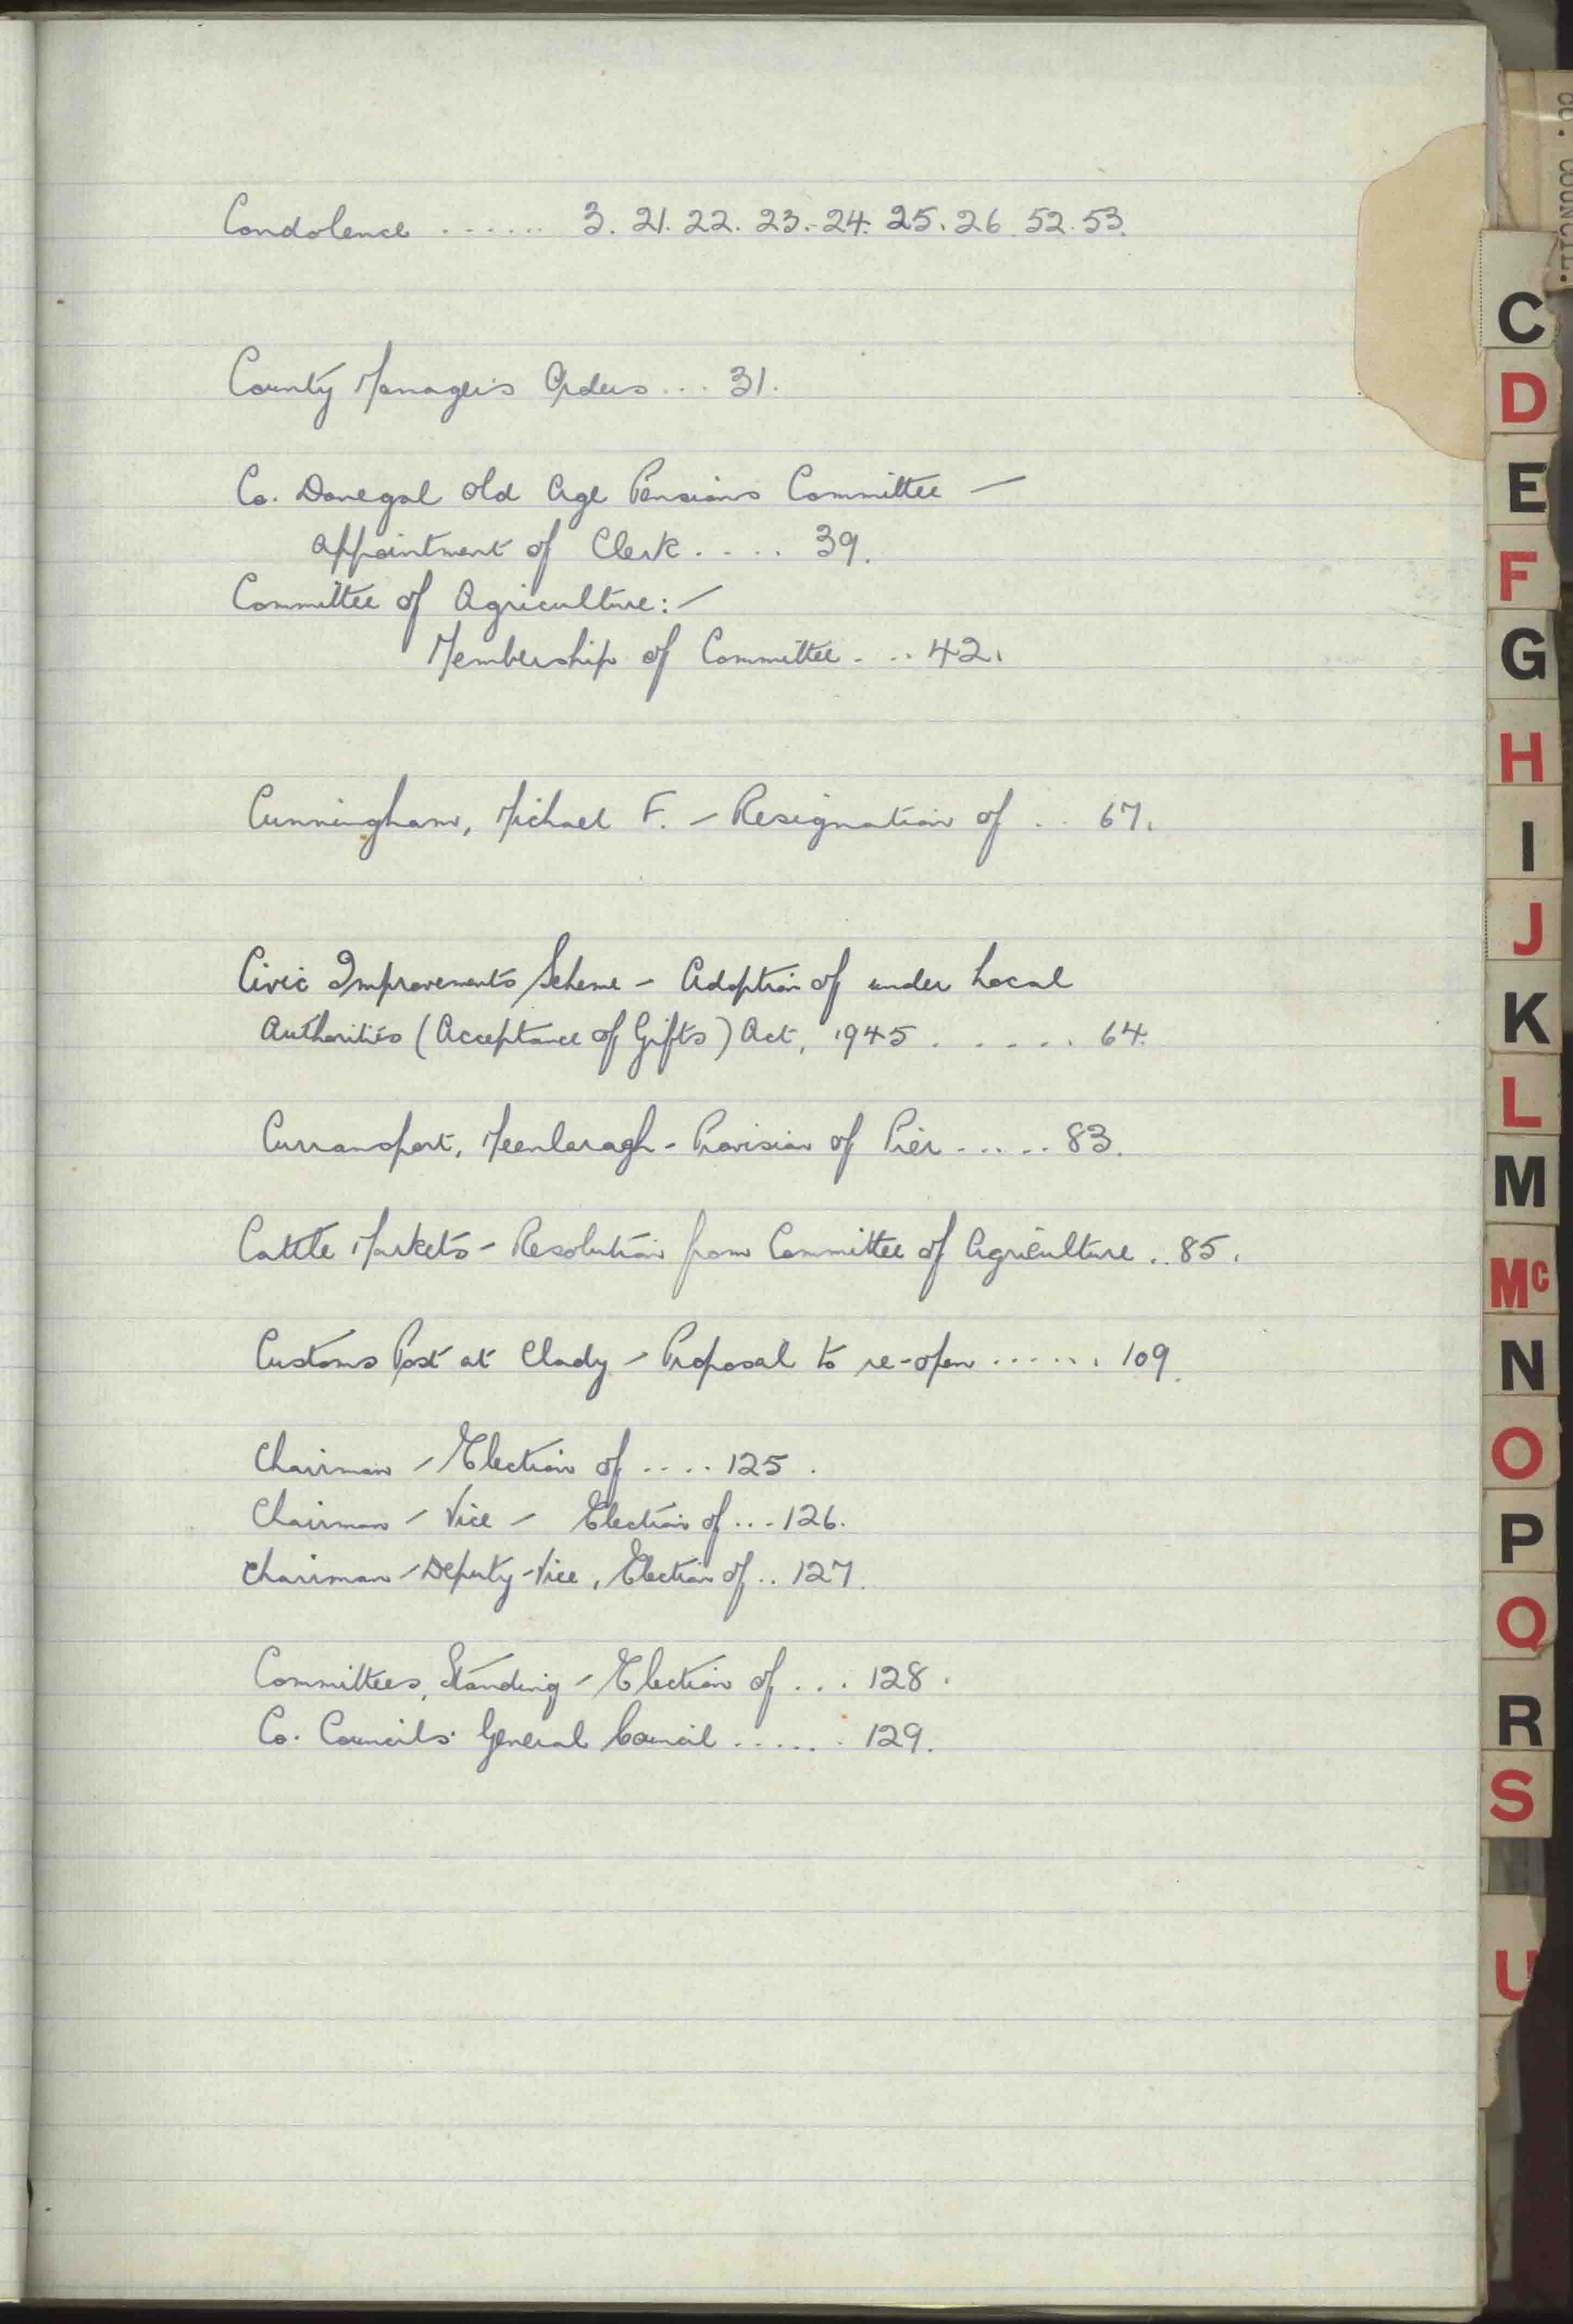 Condolence ....... 3. 21. 22. 23. 24. 25. 26. 52. 53.
County Manager's Orders ... 31.
Co. Donegal Old Age Pensions Committee -
Appointment of Clerk ..... 39.
Committee of Agriculture:-
Membership of Committee ... 42.
Cunningham, Michael F. - Resignation of .. 67.
Civic Improvements Scheme - Adoption of under Local
Authorities (Acceptance of Gifts) Act, 1945 ...... 64.
Curransport, Meenlaragh - Provision of Pier ..... 83.
Cattle Markets - Resolution from Committee of Agriculture .. 85.
Customs Post at Clady - Proposal to re-open ...... 109.
Chairman - Election of .... 125.
Chairman - Vice - Election of ... 126.
Chairman - Deputy-Vice, Election of .. 127.
Committees, Standing - Election of ... 128.
Co. Councils' General Council ...... 129.
CO. COUNCIL.
C
D
E
F
G
H
I
J
K
L
M
Mc
N
O
P
Q
R
S
U